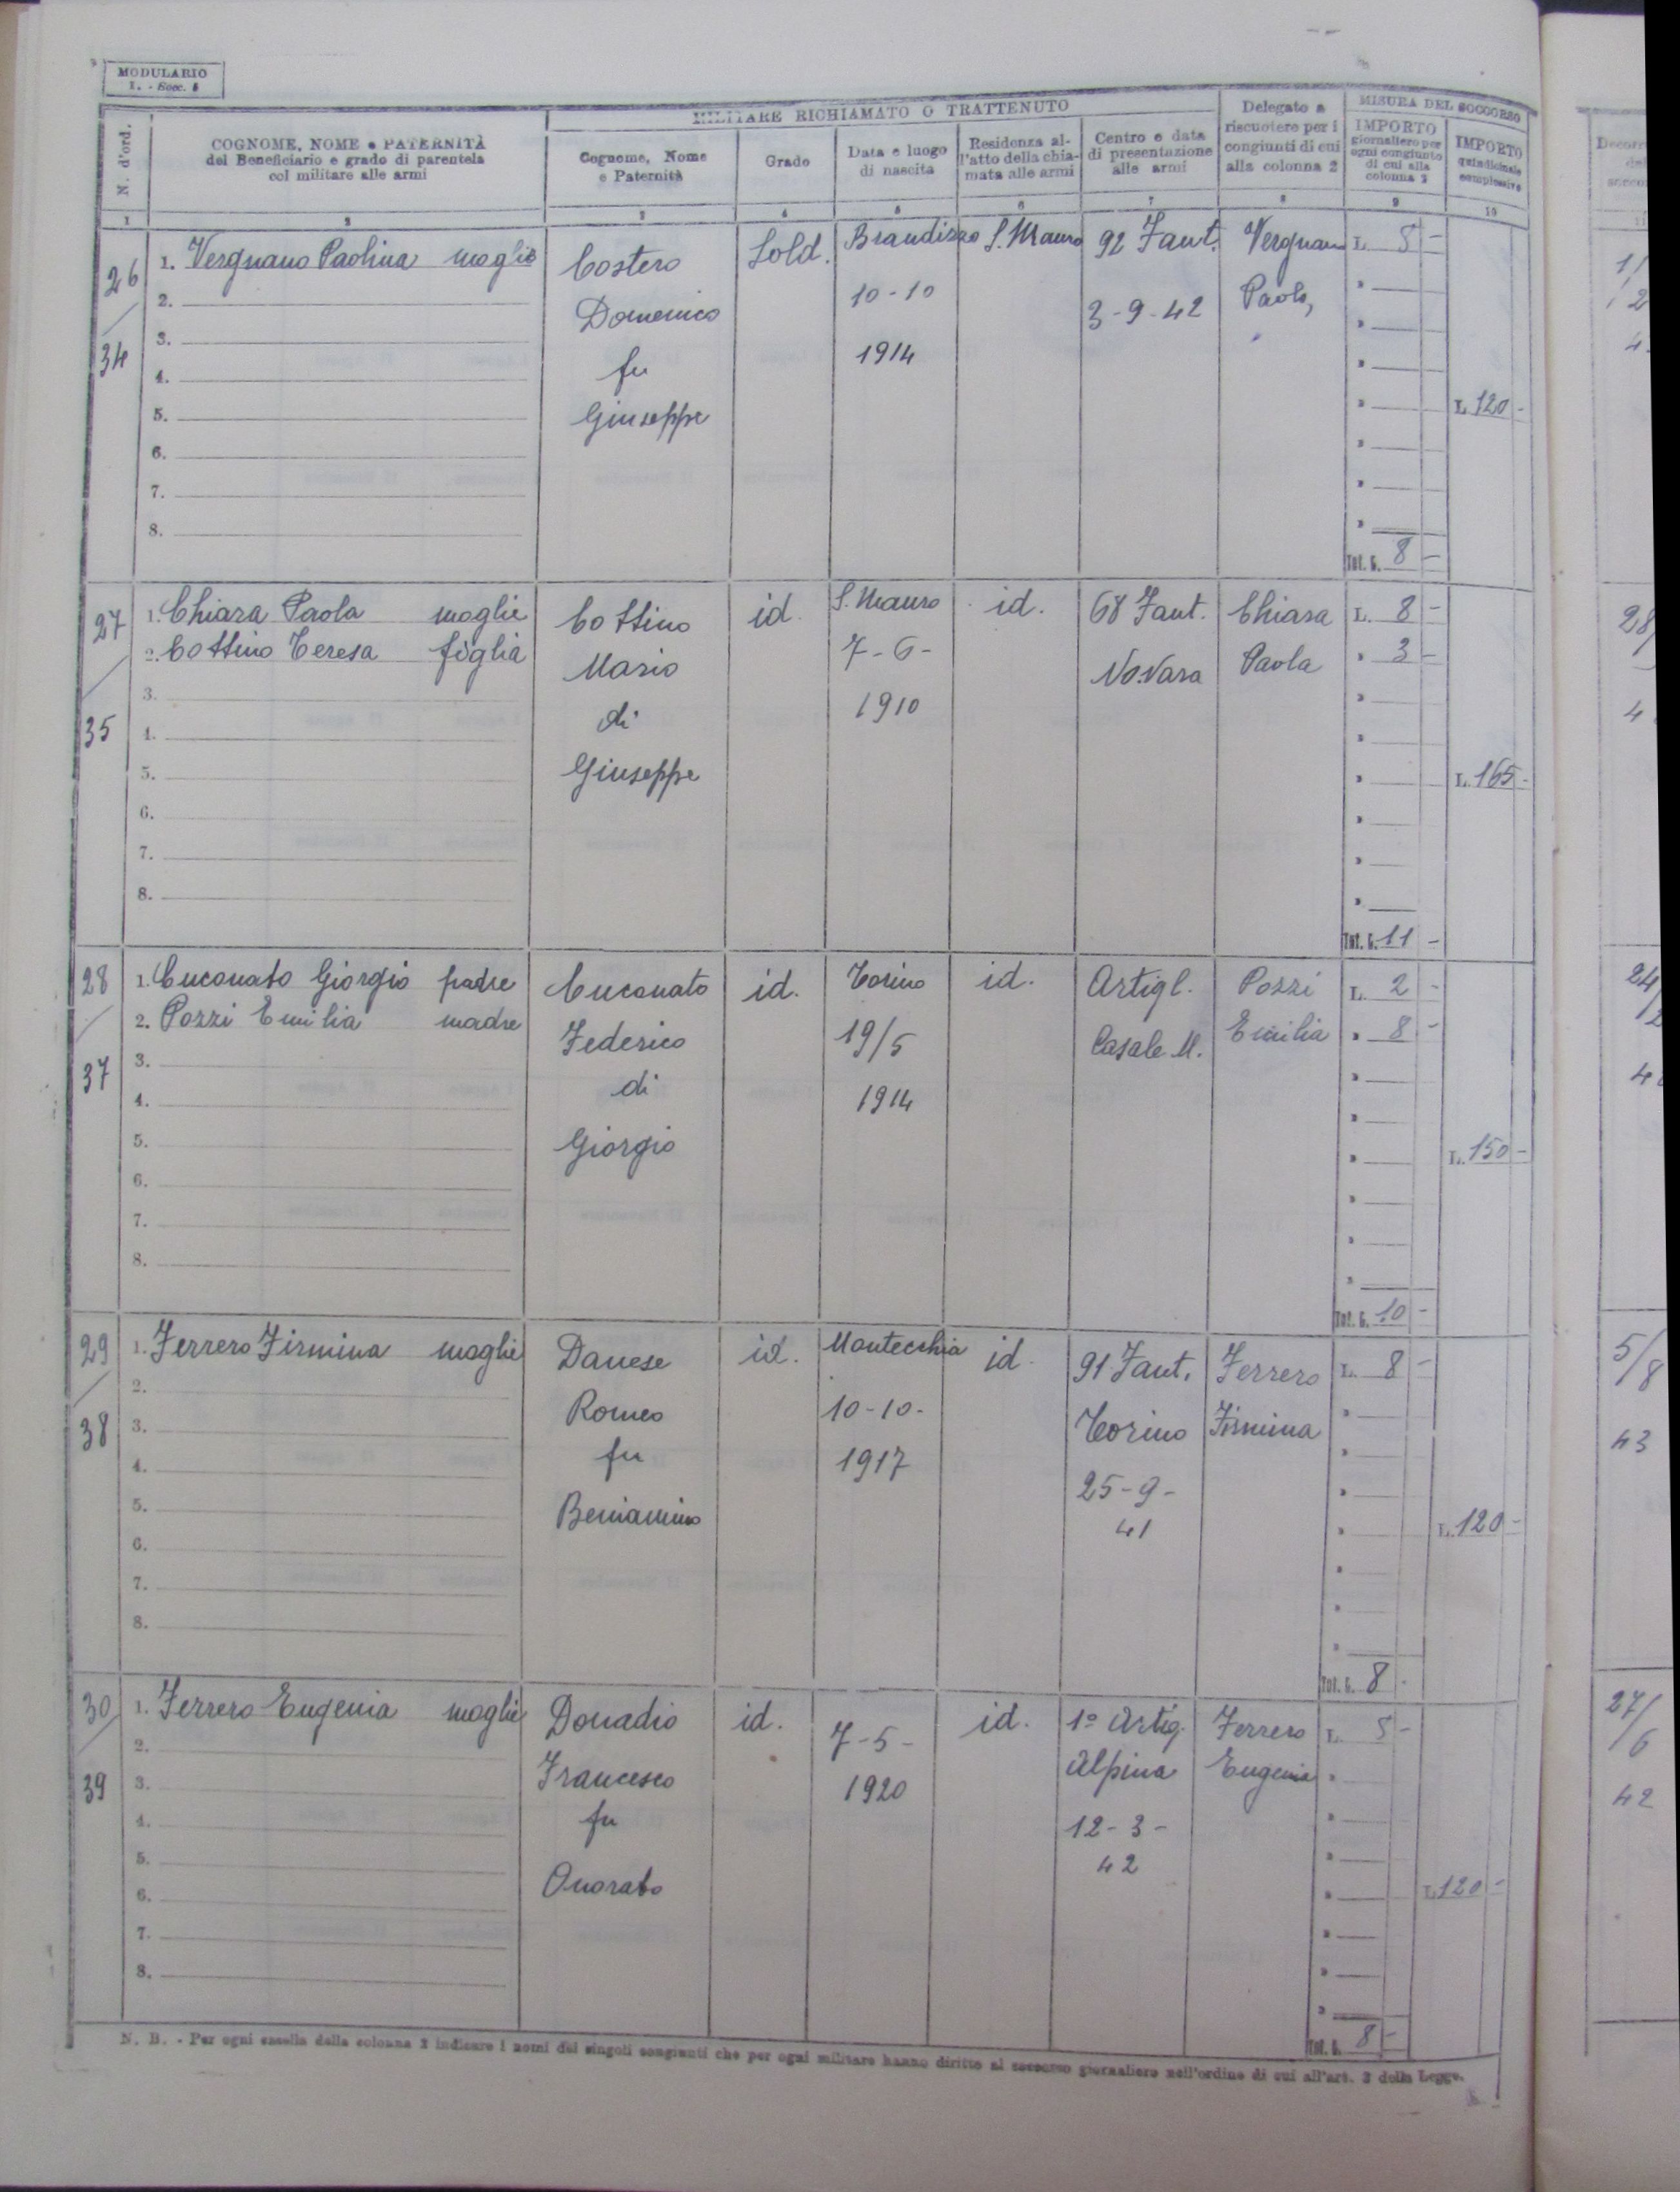 MODULARIO
I. - Socc. 5
N. d'ord.
COGNOME, NOME e PATERNITÀ
del Beneficiario e grado di parentela
col militare alle armi
MILITARE RICHIAMATO O TRATTENUTO
Cognome, Nome
e Paternità
Grado
Data e luogo
di nascita
Residenza al-
l'atto della chia-
mata alle armi
Centro e data
di presentazione
alle armi
Delegato a
riscuotere per i
congiunti di cui
alla colonna 2
MISURA DEL SOCCORSO
IMPORTO
giornaliero per
ogni congiunto
di cui alla
colonna 2
IMPORTO
quindicinale
complessivo
1 2 3 4 5 6 7 8 9 10
26
34
1. Vergnano Paolina moglie
2.
3.
4.
5.
6.
7.
8.
Costero
Domenico
fu
Giuseppe
Sold.
Brandizzo
10-10
1914
S. Mauro
92 Fant.
3-9-42
Vergnano
L. 8 -
Tot. G. 8 -
L. 120 -
27
35
1. Chiara Paola moglie
2. Cottino Teresa figlia
3.
4.
5.
6.
7.
8.
Cottino
Mario
di
Giuseppe
id.
S. Mauro
7-6-
1910
id.
68 Fant.
Novara
Chiara
Paola
L. 8 -
" 3 -
Tot. G. 11 -
L. 165 -
28
37
1. Cuconato Giorgio padre
2. Pozzi Emilia madre
3.
4.
5.
6.
7.
8.
Cuconato
Federico
di
Giorgio
id.
Torino
19/5
1914
id.
Artigl.
Casale M.
Pozzi
Emilia
L. 2 -
" 8 -
Tot. G. 10 -
L. 150 -
29
38
1. Ferrero Firmina moglie
2.
3.
4.
5.
6.
7.
8.
Danese
Romeo
fu
Beniamino
id.
Montecchia
10-10-
1917
id.
91 Fant.
Torino
25-9-
41
Ferrero
Firmina
L. 8 -
Tot. G. 8 -
L. 120 -
30
39
1. Ferrero Eugenia moglie
2.
3.
4.
5.
6.
7.
8.
Donadio
Francesco
fu
Onorato
id.
7-5-
1920
id.
1º Artig.
Alpina
12-3-
42
Ferrero
Eugenia
L. 8 -
Tot. G. 8 -
L. 120 -
N. B. - Per ogni casella della colonna 2 indicare i nomi dei singoli congiunti che per ogni militare hanno diritto al soccorso giornaliero nell'ordine di cui all'art. 3 della Legge.
5/8
43
27/6
42